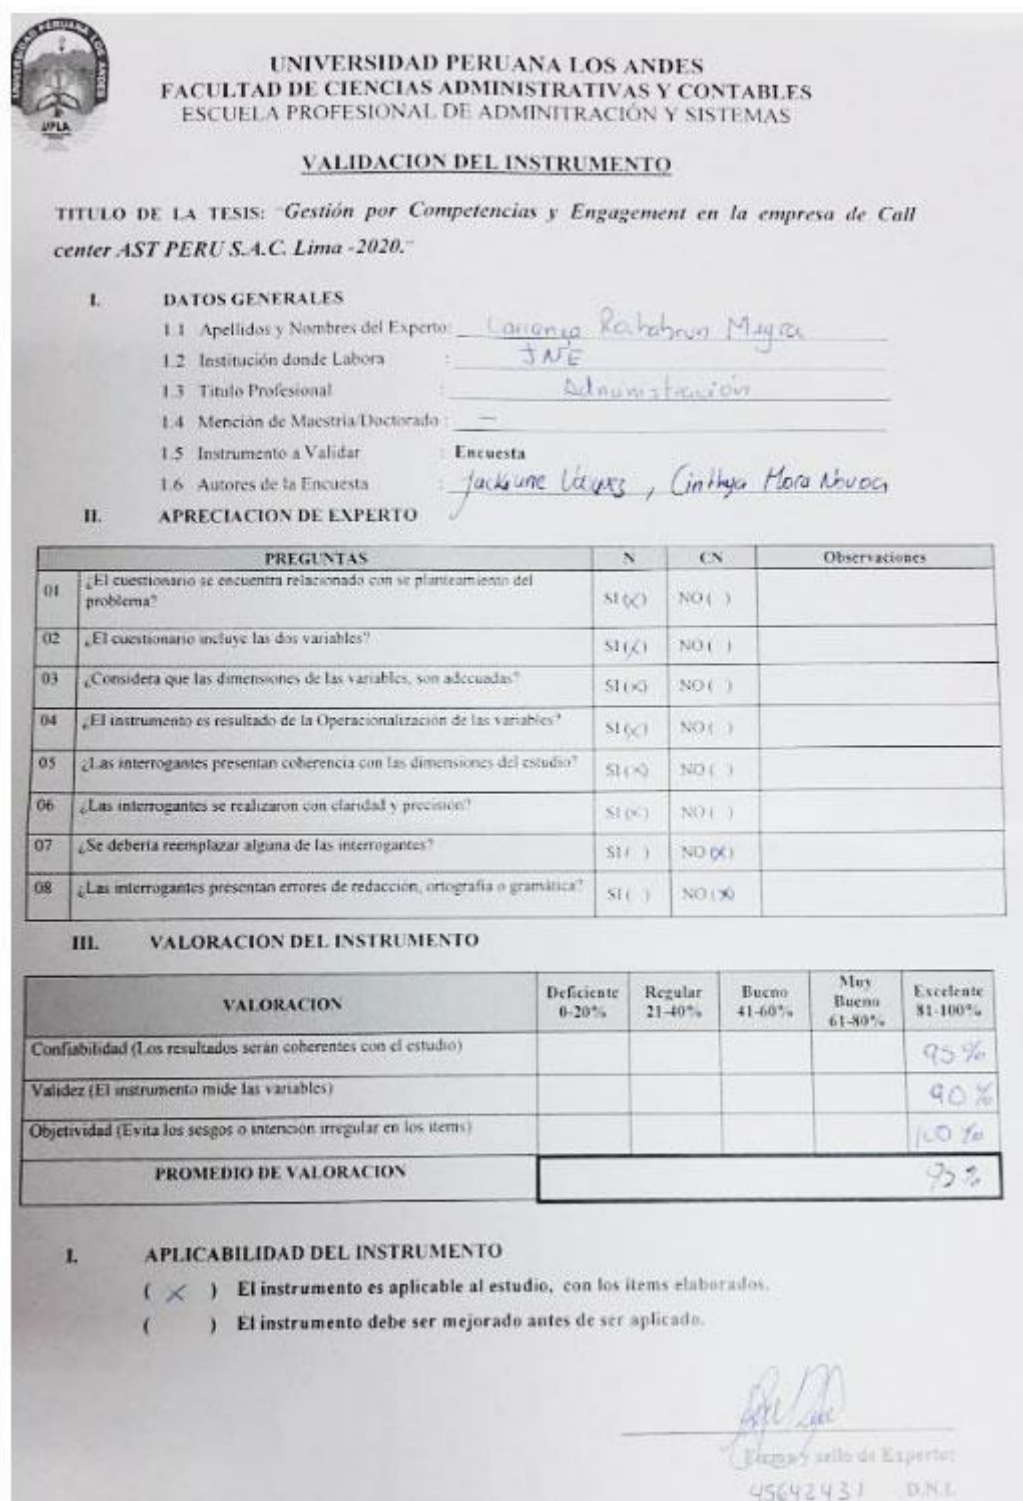 UNIVERSIDAD PERUANA LOS ANDES
UPLA
UNIVERSIDAD PERUANA LOS ANDES
FACULTAD DE CIENCIAS ADMINISTRATIVAS Y CONTABLES
ESCUELA PROFESIONAL DE ADMINITRACIÓN Y SISTEMAS
VALIDACION DEL INSTRUMENTO
TITULO DE LA TESIS: "Gestión por Competencias y Engagement en la empresa de Call
center AST PERU S.A.C. Lima -2020."
I. DATOS GENERALES
1.1 Apellidos y Nombres del Experto: Mayra
1.2 Institución donde Labora : JNE
1.3 Titulo Profesional : Administración
1.4 Mención de Maestria/Doctorado : —
1.5 Instrumento a Validar : Encuesta
1.6 Autores de la Encuesta : , Cinthya Mora Novoa
II. APRECIACION DE EXPERTO
PREGUNTAS N CN Observaciones
01 ¿El cuestionario se encuentra relacionado con se planteamiento del
problema? SI (x) NO ( )
02 ¿El cuestionario incluye las dos variables? SI (x) NO ( )
03 ¿Considera que las dimensiones de las variables, son adecuadas? SI (x) NO ( )
04 ¿El instrumento es resultado de la Operacionalización de las variables? SI (x) NO ( )
05 ¿Las interrogantes presentan coherencia con las dimensiones del estudio? SI (x) NO ( )
06 ¿Las interrogantes se realizaron con claridad y precisión? SI (x) NO ( )
07 ¿Se debería reemplazar alguna de las interrogantes? SI ( ) NO (x)
08 ¿Las interrogantes presentan errores de redacción, ortografía o gramática? SI ( ) NO (x)
III. VALORACION DEL INSTRUMENTO
VALORACION Deficiente 0-20% Regular 21-40% Bueno 41-60% Muy Bueno 61-80% Excelente 81-100%
Confiabilidad (Los resultados serán coherentes con el estudio) 95 %
Validez (El instrumento mide las variables) 90 %
Objetividad (Evita los sesgos o intención irregular en los items) 100 %
PROMEDIO DE VALORACION 95 %
I. APLICABILIDAD DEL INSTRUMENTO
( x ) El instrumento es aplicable al estudio, con los ítems elaborados.
( ) El instrumento debe ser mejorado antes de ser aplicado.
Firma y sello de Experto:
45642431 D.N.I.